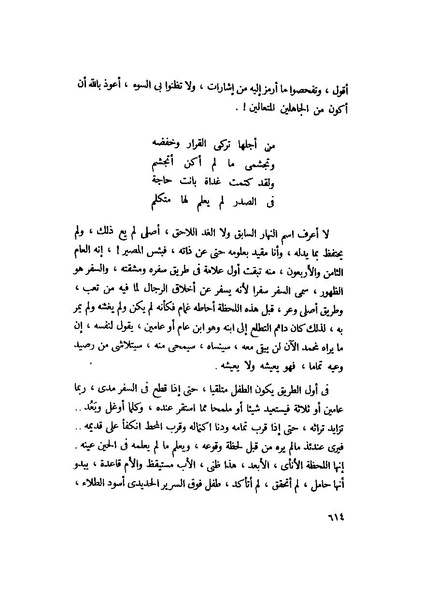 أقول ، وتفحصوا ما أرمز إليه من إشارات ، ولا تظنوا بى السوء ، أعوذ بالله أن
أكون من الجاهلين المتعالين ! .
من أجلها تركى القرار وخفضه
وتجشمى ما لم أكن أتجشم
ولقد كتمت غداة بانت حاجة
فى الصدر لم يعلم لها متكلم
لا أعرف اسم النهار السابق ولا الغد اللاحق ، أصلى لم يع ذلك ، ولم
يحتفظ بما يدله ، وأنا مقيد بعلومه حتى عن ذاته ، فبئس المصير ! ، إنه العام
الثامن والأربعون ، منه تبقت أول علامة فى طريق سفره ومشقته ، والسفر هو
الظهور ، سمى السفر سفرا لأنه يسفر عن أخلاق الرجال لما فيه من تعب ،
وطريق أصلى وعر ، قبل هذه اللحظة أحاطه غمام فكأنه لم يكن ولم يغشه ولم يمر
به ، لذلك كان دائم التطلع إلى ابنه وهو ابن عام أو عامين ، يقول لنفسه ، إن
ما يراه محمد الآن لن يبقى معه ، سينساه ، سيمحى منه ، سيتلاشى من رصيد
وعيه تماما ، فهو يعيشه ولا يعيشه .
فى أول الطريق يكون الطفل متلقيا ، حتى إذا قطع فى السفر مدى ، ربما
عامين أو ثلاثة فيستعيد شيئا أو ملمحا مما استقر عنده ، وكلما أوغل وبَعُد ..
تزايد تراثه ، حتى إذا قرب تمامه ودنا اكتماله وقرب المحط انكفأ على قديمه ..
فيرى عندئذ مالم يره من قبل لحظة وقوعه ، ويعلم ما لم يعلمه فى الحين عينه .
إنها اللحظة الأنأى ، الأبعد ، هذا ظنى ، الأب مستيقظ والأم قاعدة ، يبدو
أنها حامل ، لم أتحقق ، لم أتأكد ، طفل فوق السرير الحديدى أسود الطلاء ،
٦١٤